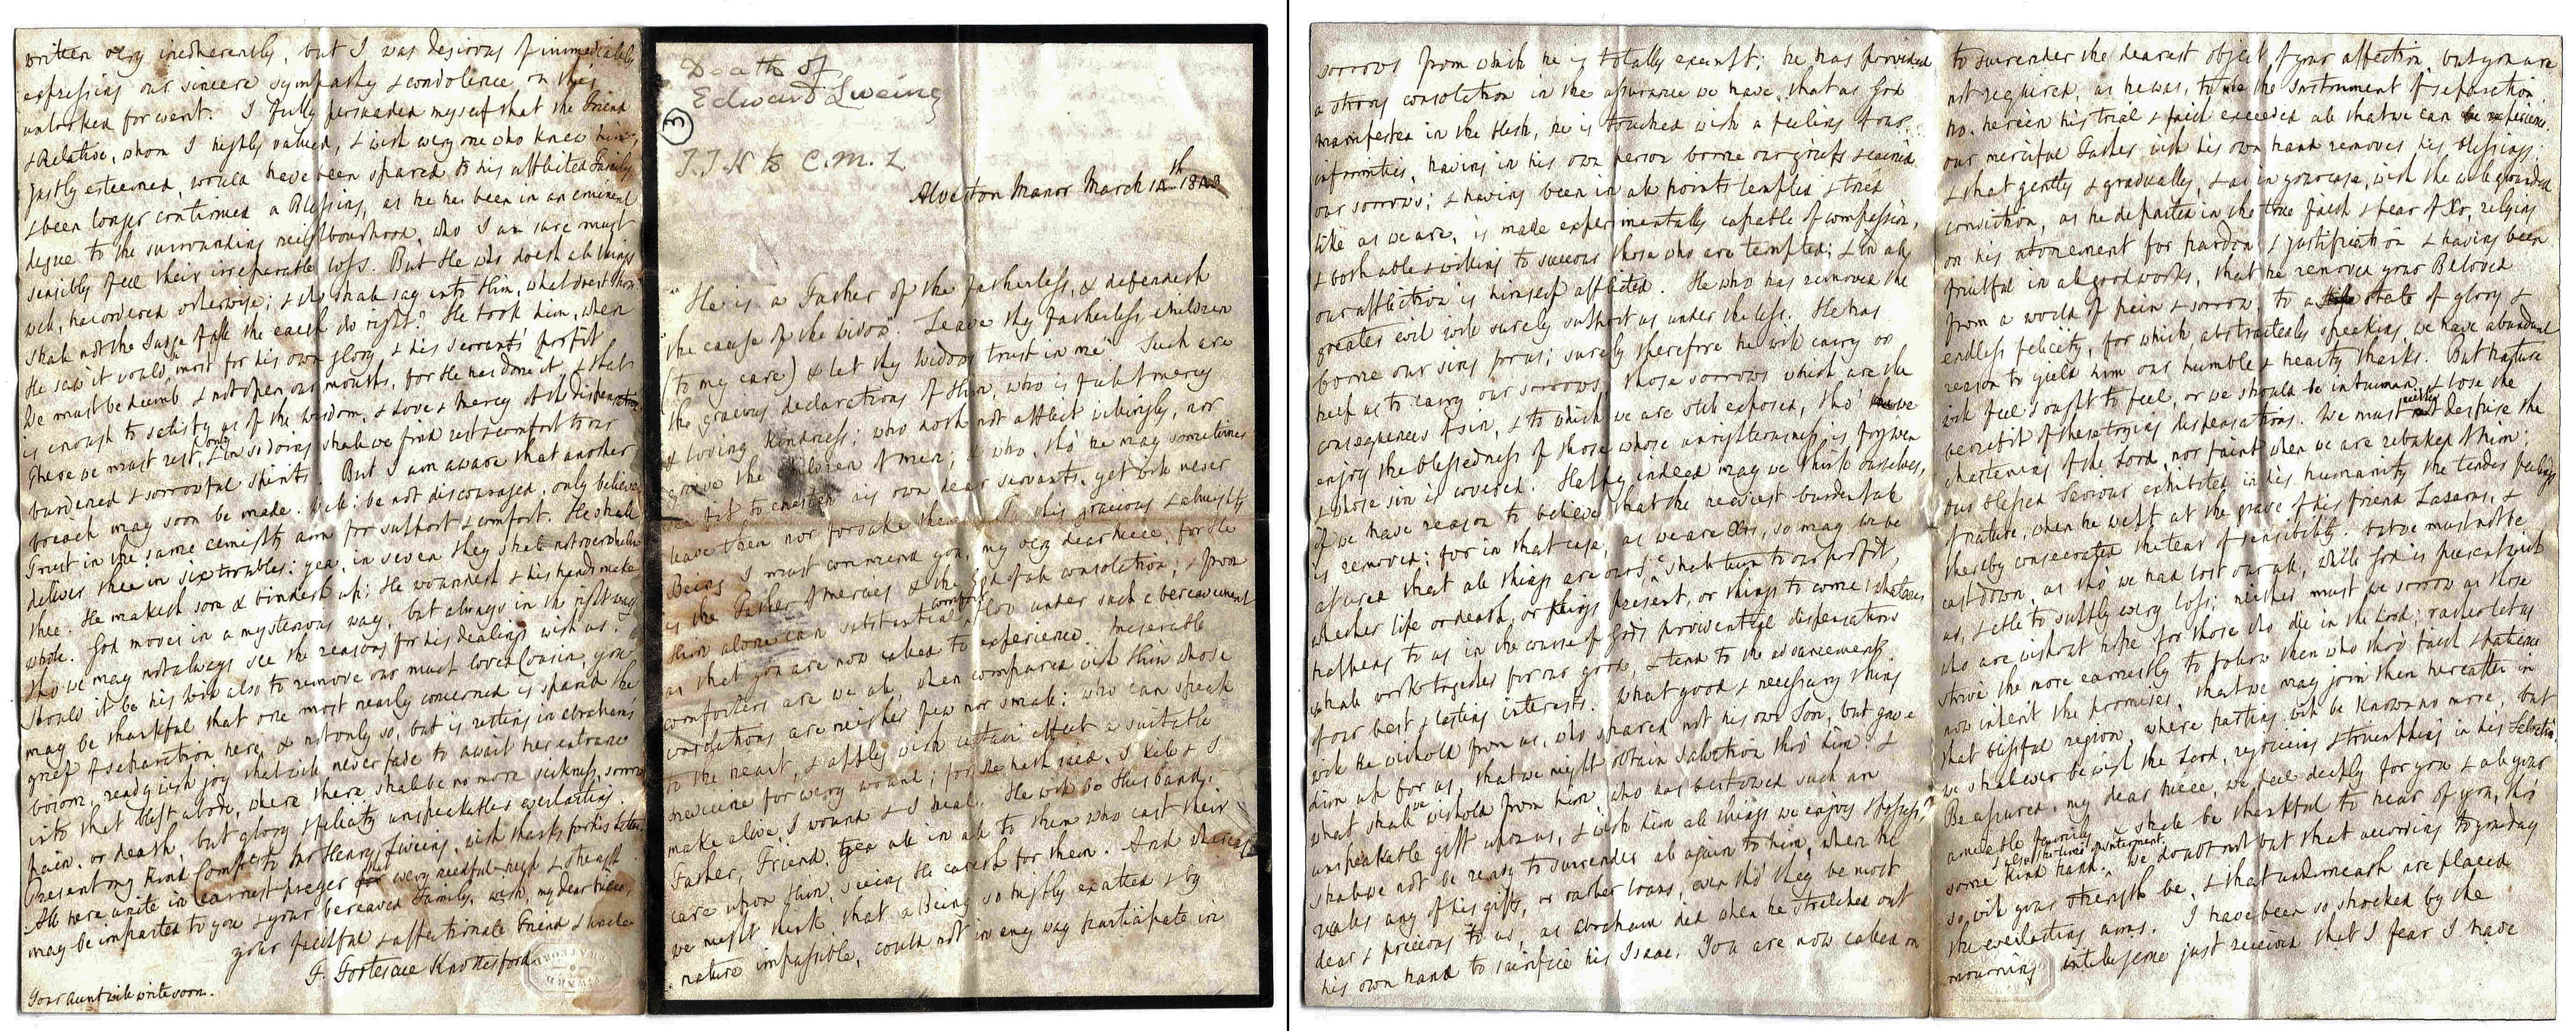 Death of
Edward Sweing
3
J.F.K to C.M.L
Alveston Manor March 14th 1843
"He is a Father of the fatherless, & defendeth
the cause of the widow". "Leave thy fatherless children
(to my care) & let thy widows trust in me". Such are
the gracious declarations of Him, who is full of mercy
& loving kindness; who doth not afflict willingly, nor
grieve the children of men; & who, tho' he may sometimes
see fit to chasten his own dear servants, yet will never
leave them nor forsake them. To this gracious & almighty
Being I must commend you, my very dear niece, for He
is the Father of mercies & the God of all consolation; & from
Him alone can substantial comfort flow under such a bereavement
as that you are now called to experience. Miserable
comforters are we all, when compared with Him whose
consolations are neither few nor small: who can speak
to the heart, & apply with certain effect a suitable
medicine for every wound; for He hath said, I kill & I
make alive, I wound & I heal. He will be Husband,
Father, Friend, yea all in all to them who cast their
care upon Him, seeing He careth for them. And whereas
we might think that a Being so highly exalted & by
nature impassible, could not in any way participate in
sorrows from which he is totally exempt; he has provided
a strong consolation in the assurance we have, that as God
manifested in the flesh, he is touched with a feeling of our
infirmities, having in his own person borne our griefs & carried
our sorrows; & having been in all points tempted & tried
like as we are, is made experimentally capable of compassion,
& both able & willing to succour those who are tempted; & in all
our affliction is himself afflicted. He who has removed the
greater evil will surely support us under the less. He has
borne our sins for us; surely therefore he will carry or
help us to carry our sorrows, those sorrows which are the
consequences of sin, & to which we are still exposed, tho' we
enjoy the blessedness of those whose unrighteousness is forgiven
& whose sin is covered. Happy indeed may we think ourselves,
if we have reason to believe that the heaviest burden of all
is removed; for in that case, as we are Xts, so may we be
assured that all things are ours, & shall turn to our profit,
whether life or death, or things present, or things to come; whatever
happens to us in the course of God's providential dispensations
shall work together for our good, & tend to the advancement
of our best & lasting interests. What good & necessary thing
will he withold from us, who spared not his own Son, but gave
him up for us, that we might obtain salvation thro' him? &
what shall we withold from him, who has bestowed such an
unspeakable gift upon us, & with him all things we enjoy & possess?
shall we not be ready to surrender all again to him, when he
recalls any of his gifts, or rather loans, even tho' they be most
dear & precious to us, as Abraham did when he stretched out
his own hand to sacrifice his Isaac. You are now called on
to surrender the dearest object of your affection, but you are
not required, as he was, to be the Instrument of separation.
No, herein his trial & faith exceeded all that we can experience.
our merciful Father with his own hand removes his blessings;
& that gently & gradually, & as in your case, with the well grounded
conviction, as he departed in the true faith & fear of Xt, relying
on his atonement for pardon & justification & having been
fruitful in all good works, that he removed your Beloved
from a world of pain & sorrow to a state of glory &
endless felicity, for which abstractedly speaking we have abundant
reason to yield him our humble & hearty thanks. But nature
will feel & ought to feel, or we should be inhuman, & lose the
benefit of these trying dispensations. We must neither despise the
chastening of the Lord, nor faint when we are rebuked of him;
our blessed Saviour exhibited in his humanity the tender feelings
of nature, when he wept at the grave of his friend Lazarus, &
thereby consecrated the tear of sensibility. but we must not be
cast down, as tho' we had lost our all, while God is present with
us, & able to supply every loss; neither must we sorrow as those
who are without hope for those who die in the Lord; rather let us
strive the more earnestly to follow them who thro' faith & patience
now inherit the promises, that we may join them hereafter in
that blissful region where parting will be known no more, but
we shall ever be with the Lord, rejoicing & triumphing in his Salvation.
Be assured, my dear niece, we feel deeply for you & all your
amiable family, & shall be thankful to hear of you, thro'
some kind hand. We doubt not but that according to your day
so, will your strength be, & that underneath are placed
the everlasting arms. I have been so shocked by the
mourning intelligence just received that I fear I have
written very incoherently, but I was desirous of immediately
expressing our sincere sympathy & condolence on this
unlooked for event. I fully persuaded myself that the friend
& Relative, whom I highly valued, & with every one who knew him,
justly esteemed, would have been spared to his afflicted Family
& been longer continued a Blessing, as he has been in an eminent
degree to the surrounding neighbourhood, who I am sure must
sensibly feel their irreparable loss. But He who doeth all things
well, has ordered otherwise; & who shall say unto Him, what doest thou?
shall not the Judge of all the earth do right? He took him, when
He saw it would most for his own glory & his servant's profit
We must be dumb & not open our mouths, for He has done it, & that
is enough to satisfy us of the wisdom, & love & mercy of the dispensation
There we must rest, & only in so doing shall we find rest & comfort to our
burdened & sorrowful spirits. But I am aware that another
breach may soon be made. Well; be not discouraged, only believe
Trust in the same almighty arm for support & comfort. He shall
deliver thee in six troubles: yea, in seven they shall not overwhelm
thee. He maketh sore & bindeth up; He woundeth & his hands make
whole. God moves in a mysterious way, but always in the right way
tho' we may not always see the reasons for his dealings with us.
Should it be his will also to remove our much loved Cousin, you
may be thankful that one most nearly concerned is spared the
grief of separation here, & not only so, but is resting in Abraham's
bosom, ready with joy that will never fade to await her entrance
into that blest abode, where there shall be no more sickness, sorrow
pain, or death, but glory & felicity unspeakable & everlasting.
Present my kind Compts to Mr Henry Sweing, with thanks for his letter.
All here unite in earnest prayer that every needful help & strength
may be imparted to you & your bereaved Family, with, my dear niece,
your faithful & affectionate Friend & Uncle
F. Fortescue Knottesford
Your aunt will write soon.